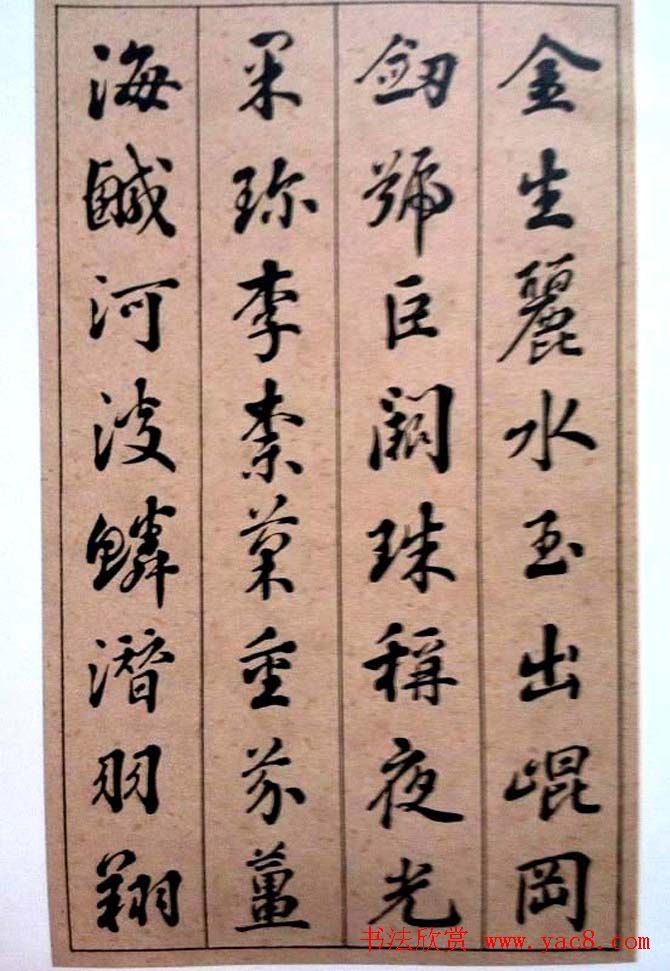 金生麗水玉出崐岡
劒號巨闕珠稱夜光
菓珎李柰菜重芥薑
海鹹河淡鱗潛羽翔
书法欣赏 www.yac8.com